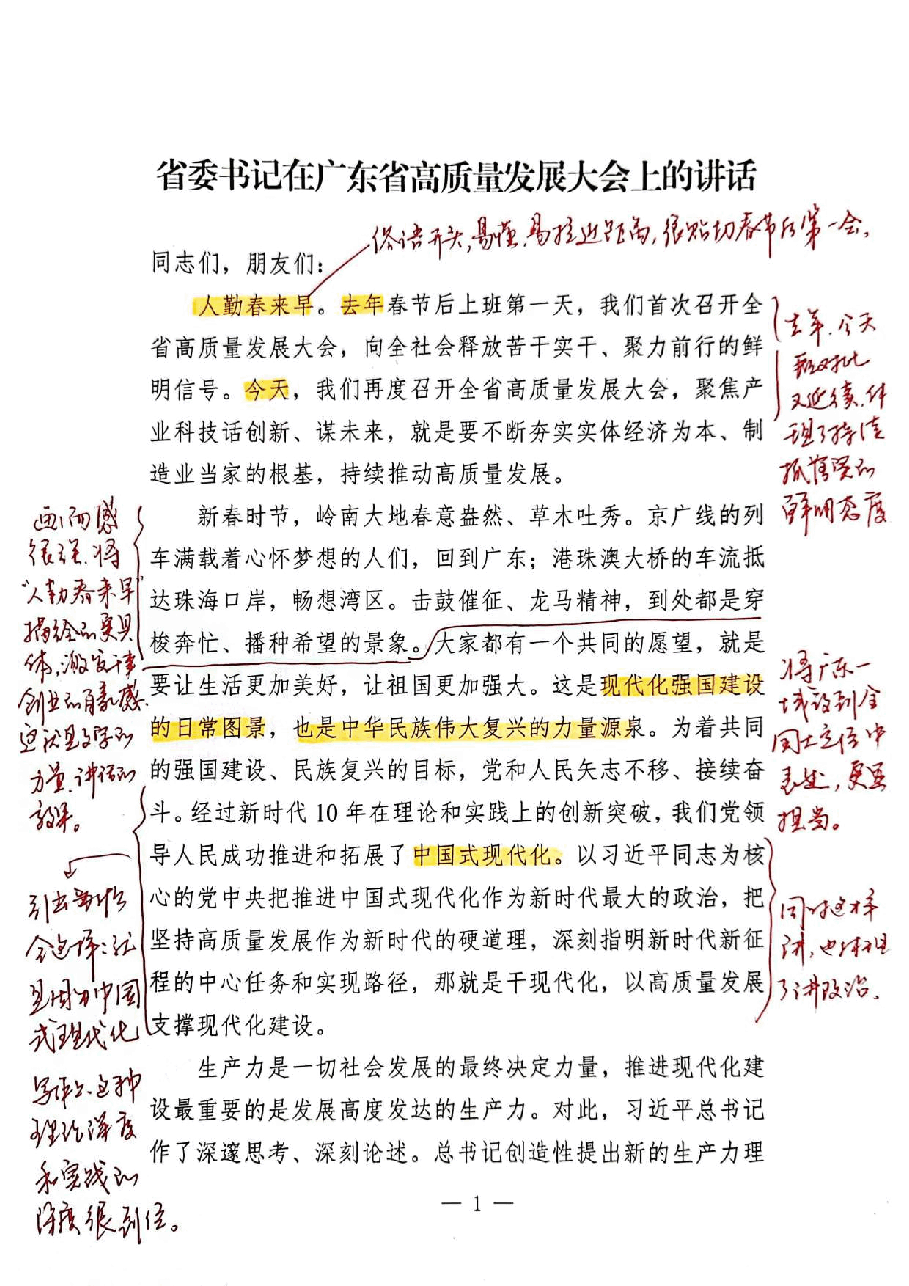 省委书记在广东省高质量发展大会上的讲话
俗语开头,易懂,易拉近距离,很贴切春节后第一会。
同志们，朋友们：
人勤春来早。去年春节后上班第一天，我们首次召开全
省高质量发展大会，向全社会释放苦干实干、聚力前行的鲜
明信号。今天，我们再度召开全省高质量发展大会，聚焦产
业科技话创新、谋未来，就是要不断夯实实体经济为本、制
造业当家的根基，持续推动高质量发展。
去年、今天
既对比
又延续,体
现了持续
抓落实的
鲜明态度
新春时节，岭南大地春意盎然、草木吐秀。京广线的列
车满载着心怀梦想的人们，回到广东；港珠澳大桥的车流抵
达珠海口岸，畅想湾区。击鼓催征、龙马精神，到处都是穿
梭奔忙、播种希望的景象。大家都有一个共同的愿望，就是
要让生活更加美好，让祖国更加强大。这是现代化强国建设
的日常图景，也是中华民族伟大复兴的力量源泉。为着共同
的强国建设、民族复兴的目标，党和人民矢志不移、接续奋
斗。经过新时代 10 年在理论和实践上的创新突破，我们党领
导人民成功推进和拓展了中国式现代化。以习近平同志为核
心的党中央把推进中国式现代化作为新时代最大的政治，把
坚持高质量发展作为新时代的硬道理，深刻指明新时代新征
程的中心任务和实现路径，那就是干现代化，以高质量发展
支撑现代化建设。
画面感
很强,将
"人勤春来早"
描绘的更具
体,激发干事
创业的自豪感
这就是文字的
力量,讲话的
效果。
将广东一
域放到全
国大立信中
表述,更显
担当。
引出为什么
会这样:
是因为中国
式现代化
写作上这种
理论深度
和实践的
厚度很到位。
同时这样
讲,也体现
了讲政治.
生产力是一切社会发展的最终决定力量，推进现代化建
设最重要的是发展高度发达的生产力。对此，习近平总书记
作了深邃思考、深刻论述。总书记创造性提出新的生产力理
— 1 —